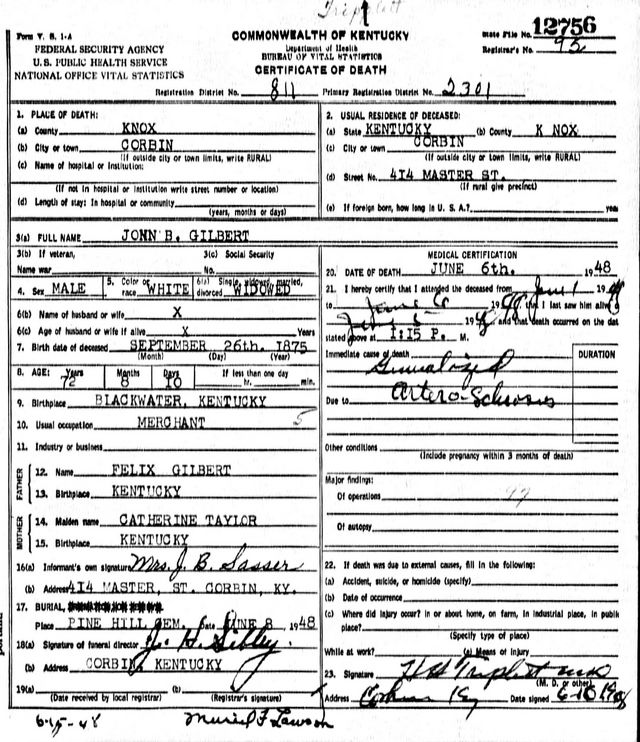 Triplett
Form V. S. 1-A
FEDERAL SECURITY AGENCY
U. S. PUBLIC HEALTH SERVICE
NATIONAL OFFICE VITAL STATISTICS
COMMONWEALTH OF KENTUCKY
Department of Health
BUREAU OF VITAL STATISTICS
CERTIFICATE OF DEATH
State File No. 12756
Registrar's No. 95
Registration District No. 811 Primary Registration District No. 2301
1. PLACE OF DEATH:
(a) County KNOX
(b) City or town CORBIN
(If outside city or town limits, write RURAL)
(c) Name of hospital or Institution:
(If not in hospital or institution write street number or location)
(d) Length of stay: In hospital or community
(years, months or days)
2. USUAL RESIDENCE OF DECEASED:
(a) State KENTUCKY (b) County K NOX
(c) City or town CORBIN
(If outside city or town limits, write RURAL)
(d) Street No. 414 MASTER ST.
(If rural give precinct)
(e) If foreign born, how long in U. S. A.? years
3(a) FULL NAME JOHN B. GILBERT
3(b) If veteran,
Name war
3(c) Social Security
No.
4. Sex MALE 5. Color or race WHITE 6(a) Single, widowed, married, divorced WIDOWED
6(b) Name of husband or wife X
6(c) Age of husband or wife if alive X Years
7. Birth date of deceased SEPTEMBER 26th. 1875
(Month) (Day) (Year)
8. AGE: Years 72 Months 8 Days 10 If less than one day
hr. min.
9. Birthplace BLACKWATER, KENTUCKY
10. Usual occupation MERCHANT 5
11. Industry or business
FATHER
12. Name FELIX GILBERT
13. Birthplace KENTUCKY
MOTHER
14. Maiden name CATHERINE TAYLOR
15. Birthplace KENTUCKY
16(a) Informant's own signature Mrs. J. B. Sasser
(b) Address 414 MASTER, ST. CORBIN, KY.
17. BURIAL,
Place PINE HILL CEM. Date JUNE 8 1948
18(a) Signature of funeral director J. H. Sibley.
(b) Address CORBIN, KENTUCKY
19(a) (b)
(Date received by local registrar) (Registrar's signature)
6-15-48 Muriel F Lawson
MEDICAL CERTIFICATION
20. DATE OF DEATH JUNE 6th. 1948
21. I hereby certify that I attended the deceased from June 1 1948
to June 6 1948, that I last saw him alive
June 6 1948 and that death occurred on the date
stated above at 1:15 P. M.
Immediate cause of death Generalized
Due to Artero-Sclerosis
DURATION
Other conditions
(Include pregnancy within 3 months of death)
Major findings:
Of operations 97
Of autopsy
22. If death was due to external causes, fill in the following:
(a) Accident, suicide, or homicide (specify)
(b) Date of occurrence
(c) Where did injury occur? in or about home, on farm, in industrial place, in public
place?
(Specify type of place)
While at work? (e) Means of injury
23. Signature H H Triplett MD
(M. D. or other)
Address Corbin Ky Date signed 6-10 1948